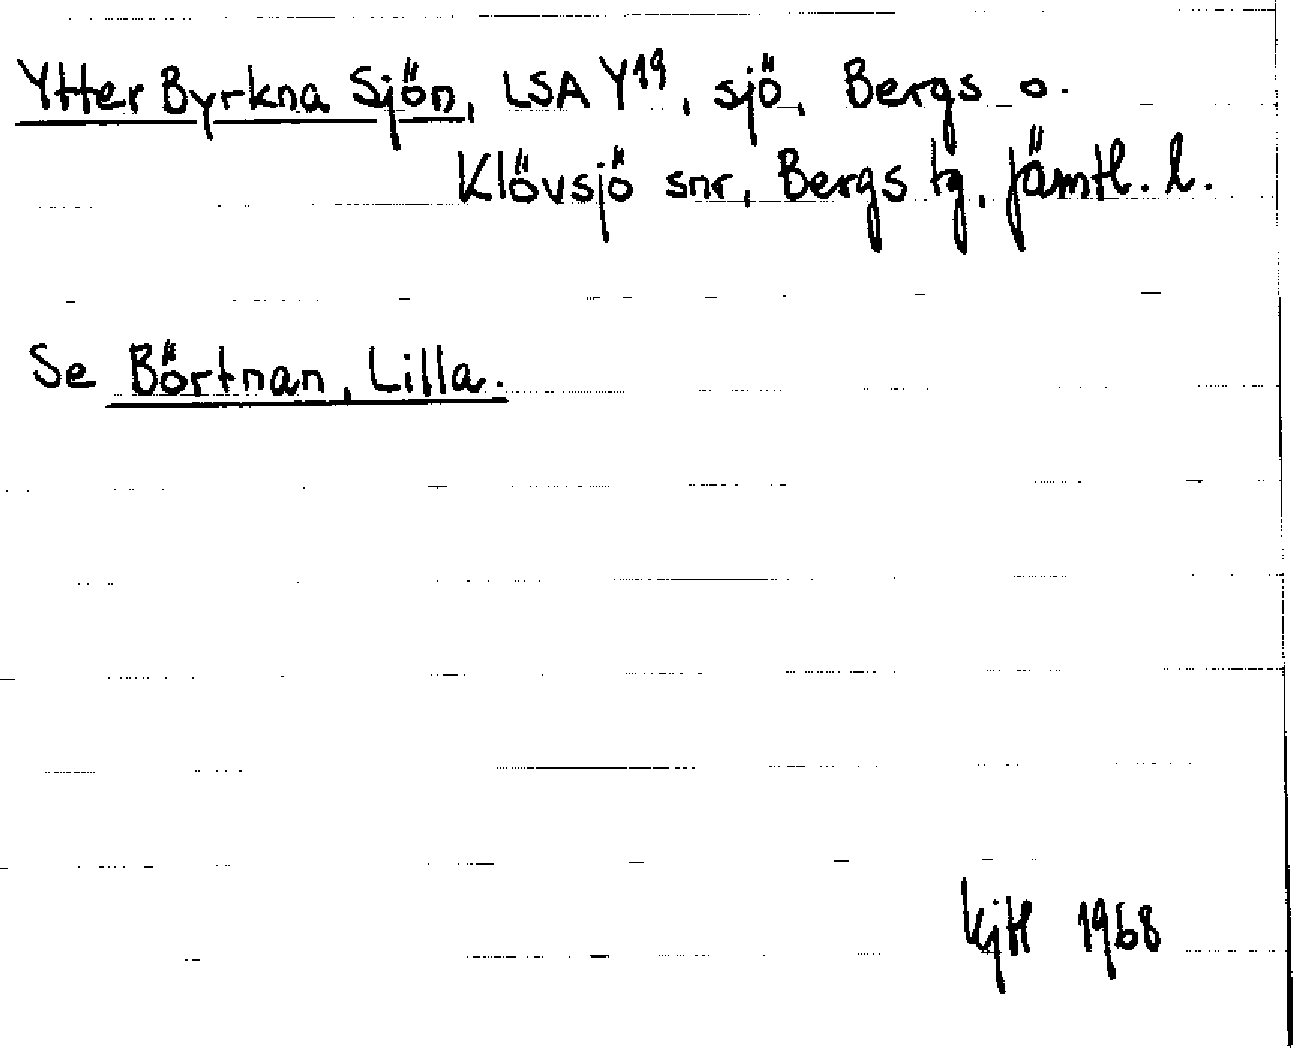 Ytter Byrkna Sjön, LSA Y¹⁹, sjö, Bergs o.
Klövsjö snr, Bergs tg, Jämtl. l.
Se Börtnan, Lilla.
KjH 1968